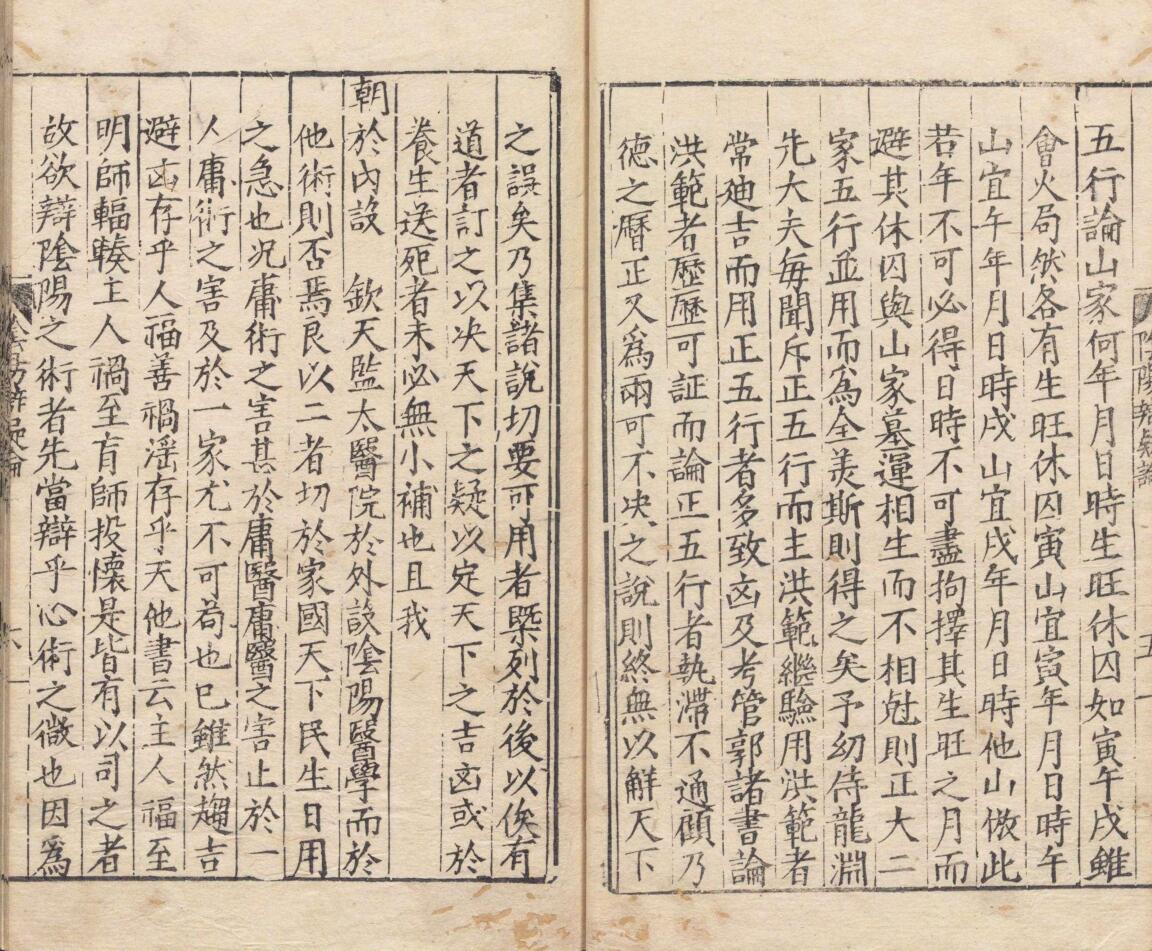 五行論山家何年月日時生旺休囚如寅午戌雖
會火局然各有生旺休囚寅山宜寅年月日時午
山宜午年月日時戌山宜戌年月日時他山倣此
若年不可必得日時不可盡拘擇其生旺之月而
避其休囚與山家墓運相生而不相尅則正大二
家五行並用而為全美斯則得之矣予幼侍龍淵
先大夫每聞斥正五行而主洪範繼驗用洪範者
常廸吉而用正五行者多致凶及考管郭諸書論
洪範者歷歷可証而論正五行者執滯不通顧乃
德之曆正又爲兩可不决之說則終無以解天下
之誤矣乃集諸說切要可用者槩列於後以俟有
道者訂之以决天下之疑以定天下之吉凶或於
養生送死者未必無小補也且我
朝於內設 欽天監太醫院於外設陰陽醫學而於
他術則否焉良以二者切於家國天下民生日用
之急也况庸術之害甚於庸醫庸醫之害止於一
人庸術之害及於一家尤不可茍也已雖然趨吉
避凶存乎人福善禍滛存乎天他書云主人福至
明師輻輳主人禍至盲師投懷是皆有以司之者
故欲辯陰陽之術者先當辯乎心術之微也因爲